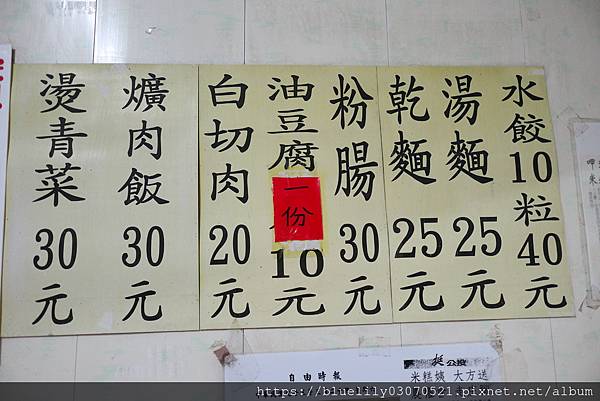 水餃10粒40元
湯麵25元
乾麵25元
粉腸30元
油豆腐一份10元
白切肉20元
爌肉飯30元
燙青菜30元
自由時報
挺
米糕姨 大方送
https://bluelily03070521.pixnet.net/album